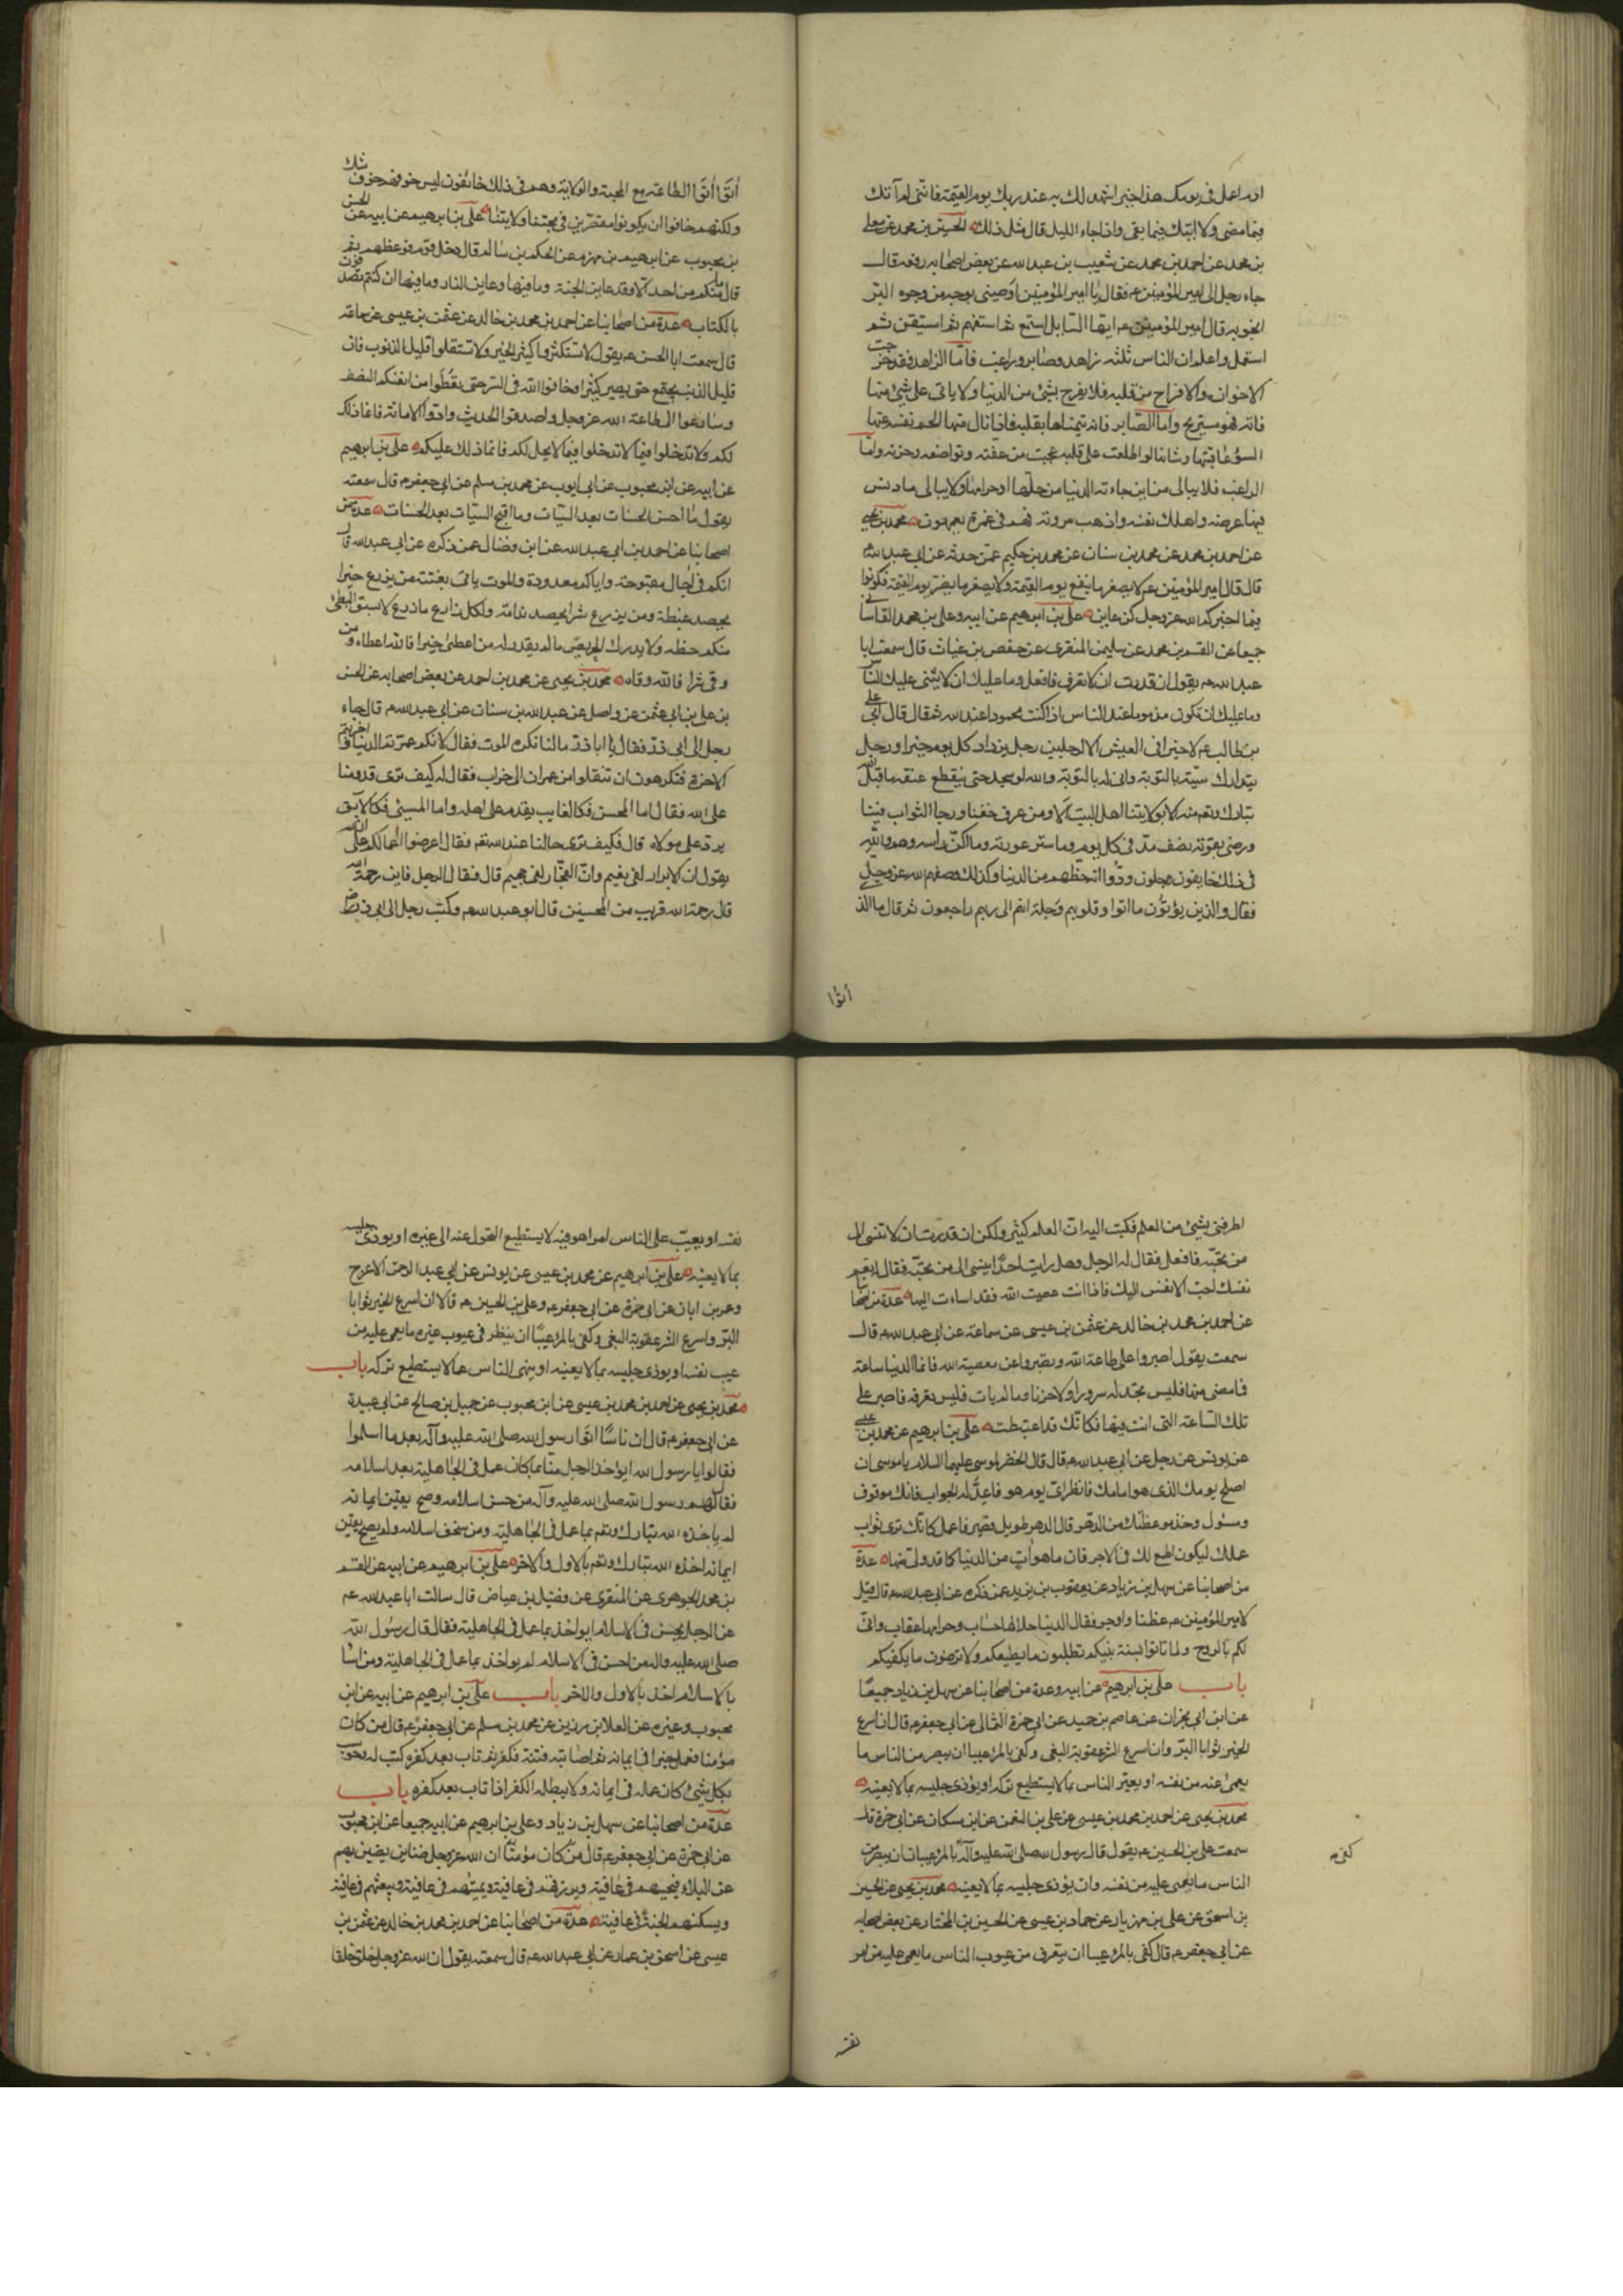 اوم اعمل فى يومك هذا خيرا اشهد لك به عند ربك يوم القيمة فانى لم آتك
فيما مضى ولا اتيك فيما بقى واذا جاء الليل قال مثل ذلك الحسين بن محمد عن معلى
بن محمد عن احمد بن محمد عن شعيب بن عبد الله عن بعض اصحابه رفعه قال
جاء رجل الى امير المؤمنين ع فقال يا امير المؤمنين اوصنى بوجه من وجوه البر
انجو به قال امير المؤمنين ع ايها السايل استمع ثم استفهم ثم استيقن ثم
استعمل واعلم ان الناس ثلثه زاهد وصابر وراغب فاما الزاهد فقد خرجت
الاحزان والافراح من قلبه فلا يفرح بشئ من الدنيا ولا ياسى على شئ منها
فاته فهو مستريح واما الصابر فانه يتمناها بقلبه فاذا نال منها الجم نفسه عنها
لسوء عاقبتها وشنانها لو اطلعت على قلبه عجبت من عفته وتواضعه وحزمه واما
الراغب فلا يبالى من اين جاءته الدنيا من حلها او حرامها ولا يبالى ما دنس
فيها عرضه واهلك نفسه واذهب مروته فهم فى غمرة يعمهون محمد بن يحيى
عن احمد بن محمد عن محمد بن سنان عن محمد بن حكيم عمن حدثه عن ابى عبد الله ع
قال قال امير المؤمنين ع لا يصغر ما ينفع يوم القيمة ولا يصغر ما يضر يوم القيمة فكونوا
فيما اخبركم الله عز وجل كمن عاين على بن ابرهيم عن ابيه وعلى بن محمد القاسانى
جميعا عن القسم بن محمد عن سليمن المنقرى عن حفص بن غياث قال سمعت ابا
عبد الله ع يقول ان قدرت ان لا تعرف فافعل وما عليك ان لا يثنى عليك الناس
وما عليك ان تكون مذموما عند الناس اذا كنت محمودا عند الله ثم قال قال ابى على
بن ابى طالب ع لا خير فى العيش الا لرجلين رجل يزداد كل يوم خيرا ورجل
يتدارك سيئة بالتوبة وانى له بالتوبة والله لو سجد حتى ينقطع عنقه ما قبل الله
تبارك وتعالى منه الا بولايتنا اهل البيت الا ومن عرف حقنا ورجا الثواب فينا
ورضى بقوته نصف مد فى كل يوم وما ستر عورته وما اكن راسه وهم والله
فى ذلك خايفون وجلون ودوا انه حظهم من الدنيا وكذلك وصفهم الله عز وجل
فقال والذين يؤتون ما اتوا وقلوبهم وجلة انهم الى ربهم راجعون ثم قال ما الذى
أتوا
أتوا أتوا الطاعة مع المحبة والولاية وهم فى ذلك خائفون ليس خوفهم خوف شك
ولكنهم خافوا ان يكونوا مقصرين فى محبتنا ولايتنا على بن ابرهيم عن ابيه عن الحسن
بن محبوب عن ابرهيم بن مهزم عن الحكم بن سالم قال دخل قوم فوعظهم ثم
قال ما منكم من احد الا وقد عاين الجنة وما فيها وعاين النار وما فيها ان كنتم تصدقون
بالكتاب عدة من اصحابنا عن احمد بن محمد بن خالد عن عثمن بن عيسى عن سماعة
قال سمعت ابا الحسن ع يقول لا تستكثروا كثير الخير ولا تستقلوا قليل الذنوب فان
قليل الذنب يجتمع حتى يصير كثيرا وخافوا الله فى السر حتى تعطوا من انفسكم النصف
وسارعوا الى طاعة الله عز وجل واصدقوا الحديث وادوا الامانة فانما ذلك
لكم ولا تدخلوا فيما لا يحل لكم فانما ذلك عليكم على بن ابرهيم
عن ابيه عن ابن محبوب عن ابى ايوب عن محمد بن مسلم عن ابى جعفر ع قال سمعته
يقول ما احسن الحسنات بعد السيات وما اقبح السيات بعد الحسنات عدة من
اصحابنا عن احمد بن ابى عبد الله عن ابن فضال عمن ذكره عن ابى عبد الله قال
انكم فى اجال مقبوضة وايام معدودة والموت ياتى بغتة من يزرع خيرا
يحصد غبطة ومن يزرع شرا يحصد ندامة ولكل زارع ما زرع لا يسبق البطئ
منكم حظه ولا يدرك حريص ما لم يقدر له من اعطى خيرا فالله اعطاه ومن
وقى شرا فالله وقاه محمد بن يحيى عن محمد بن احمد عن بعض اصحابه عن الحسن
بن على بن ابى عثمن عن واصل عن عبد الله بن سنان عن ابى عبد الله ع قال جاء
رجل الى ابى ذر فقال يا ابا ذر ما لنا نكره الموت فقال لانكم عمرتم الدنيا واخربتم
الاخرة فتكرهون ان تنقلوا من عمران الى خراب فقال له كيف ترى قدومنا
على الله فقال اما المحسن فكالغايب يقدم على اهله واما المسئ فكالآبق
يرد على مولاه قال فكيف ترى حالنا عند الله تعم فقال اعرضوا اعمالكم على
يقول ان الابرار لفى نعيم وان الفجار لفى جحيم قال فقال الرجل فاين رحمة الله
قال رحمة الله قريب من المحسنين قال ابو عبد الله ع وكتب رجل الى ابى ذر رض
اطرفنى بشئ من العلم فكتب اليه ان العلم كثير ولكن ان قدرت ان لا تسئ الى
من تحبه فافعل فقال له الرجل وهل رايت احدا يسئ الى من يحبه فقال له نعم
نفسك احب الانفس اليك فاذا انت عصيت الله فقد اسات اليها عدة من اصحابنا
عن احمد بن محمد بن خالد عن عثمن بن عيسى عن سماعة عن ابى عبد الله ع قال
سمعته يقول اصبروا على طاعة الله وتصبروا عن معصية الله فانما الدنيا ساعة
فما مضى منها فليس تجد له سرورا ولا حزنا وما لم يات فليس تعرفه فاصبر على
تلك الساعة التى انت فيها فكانك قد اغتبطت على بن ابرهيم عن محمد بن عيسى
عن يونس عن رجل عن ابى عبد الله ع قال قال الخضر لموسى عليهما السلام يا موسى ان
اصلح يومك الذى هو امامك فانظر اى يوم هو فاعد له الجواب فانك موقوف
ومسئول وخذ موعظتك من الدهر فان الدهر طويل قصير فاعمل كانك ترى ثواب
عملك ليكون اطمع لك فى الاجر فان ما هو آت من الدنيا كما قد ولى منها عدة
من اصحابنا عن سهل بن زياد عن يعقوب بن يزيد عمن ذكره عن ابى عبد الله ع قال قيل
لامير المؤمنين ع عظنا واوجز فقال الدنيا حلالها حساب وحرامها عقاب وانى
لكم بالروح ولما تاسوا بسنة نبيكم تطلبون ما يطغيكم ولا ترضون ما يكفيكم
باب على بن ابرهيم عن ابيه وعدة من اصحابنا عن سهل بن زياد جميعا
عن ابن ابى نجران عن عاصم بن حميد عن ابى حمزة الثمالى عن ابى جعفر ع قال ان اسرع
الخير ثوابا البر وان اسرع الشر عقوبة البغى وكفى بالمرء عيبا ان يبصر من الناس ما
يعمى عنه من نفسه او يعير الناس بما لا يستطيع تركه او يؤذى جليسه بما لا يعنيه
محمد بن يحيى عن احمد بن محمد بن عيسى عن على بن النعمن عن ابن مسكان عن ابى حمزة قال
سمعت على بن الحسين ع يقول قال رسول الله صلى الله عليه وآله بالمرء عيبا ان يبصر من
كفى م
الناس ما يعمى عليه من نفسه وان يؤذى جليسه بما لا يعنيه محمد بن يحيى عن الحسين
بن اسحق عن على بن مهزيار عن حماد بن عيسى عن الحسين بن المختار عن بعض اصحابه
عن ابى جعفر ع قال كفى بالمرء عيبا ان يتعرف من عيوب الناس ما يعمى عليه من امر
نفسه
نفسه او يعيب على الناس امرا هو فيه لا يستطيع التحول عنه الى غيره او يوذى جليسه
بما لا يعنيه على بن ابرهيم عن محمد بن عيسى عن يونس عن ابى عبد الرحمن الاعرج
وعمر بن ابان عن ابى حمزة عن ابى جعفر ع وعلى بن الحسين ع قالا ان اسرع الخير ثوابا
البر واسرع الشر عقوبة البغى وكفى بالمرء عيبا ان ينظر فى عيوب غيره ما يعمى عليه من
عيب نفسه او يوذى جليسه بما لا يعنيه او ينهى الناس عما لا يستطيع تركه باب
محمد بن يحيى عن احمد بن محمد بن عيسى عن ابن محبوب عن جميل بن صالح عن ابى عبيدة
عن ابى جعفر ع قال ان ناسا اتوا رسول الله صلى الله عليه وآله بعد ما اسلموا
فقالوا يا رسول الله ايؤخذ الرجل منا بما كان عمل فى الجاهلية بعد اسلامه
فقال لهم رسول الله صلى الله عليه وآله من حسن اسلامه وصح يقين ايمانه
لم ياخذه الله تبارك وتعم بما عمل فى الجاهلية ومن سخف اسلامه ولم يصح يقين
ايمانه اخذه الله تبارك وتعم بالاول والاخر على بن ابرهيم عن ابيه عن القسم
بن محمد الجوهرى عن المنقرى عن فضيل بن عياض قال سالت ابا عبد الله ع
عن الرجل يحسن فى الاسلام ايواخذ بما عمل فى الجاهلية فقال قال رسول الله
صلى الله عليه واله من احسن فى الاسلام لم يواخذ بما عمل فى الجاهلية ومن اساء
بالاسلام اخذ بالاول والاخر باب على بن ابرهيم عن ابيه عن ابن
محبوب وغيره عن العلا بن رزين عن محمد بن مسلم عن ابى جعفر ع قال من كان
مؤمنا فعمل خيرا فى ايمانه ثم اصابته فتنة فكفر ثم تاب بعد كفره كتب له وحوسب
بكل شئ كان عمله فى ايمانه ولا يبطله الكفر اذا تاب بعد كفره باب
عدة من اصحابنا عن سهل بن زياد وعلى بن ابرهيم عن ابيه جميعا عن ابن محبوب
عن ابى حمزة عن ابى جعفر ع قال ان الله عز وجل ضناين يضن بهم
عن البلاء فيحييهم فى عافية ويرزقهم فى عافية ويميتهم فى عافية ويبعثهم فى عافية
ويسكنهم الجنة فى عافية عدة من اصحابنا عن احمد بن محمد بن خالد عن عثمن بن
عيسى عن اسحق بن عمار عن ابى عبد الله ع قال سمعته يقول ان الله عز وجل خلق خلقا